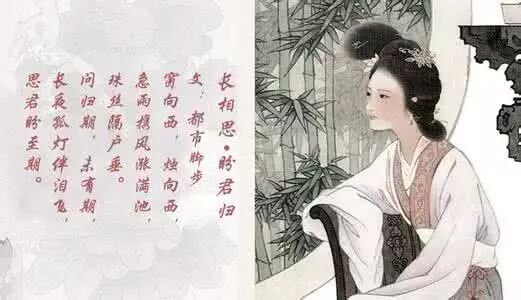 长相思•盼君归
文：都市脚步
窗向西，烛向西，
急雨携风涨满池，
珠丝隔户垂。
问归期，未有期，
长夜孤灯伴泪飞，
思君盼至期。